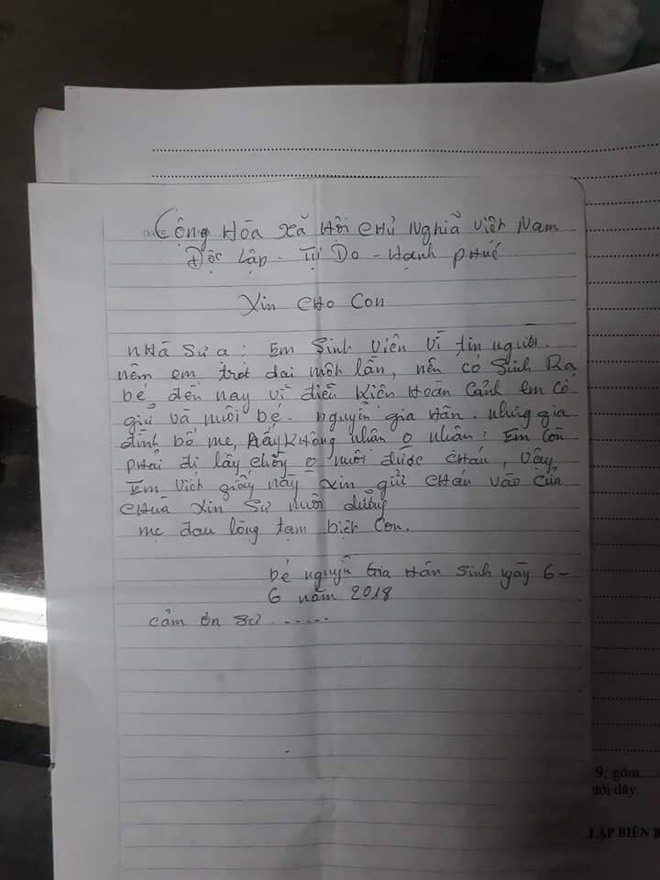 Cộng Hòa xã Hội CHủ Nghĩa việt Nam
Độc lập - Tự Do - Hạnh PHúc
Xin CHO Con
NHà Sư ạ: Em Sinh viên vì tin người
nên em trót dại một lần, nên có Sinh Ra
bé đến nay vì điều Kiên Hoàn Cảnh em có
giữ và nuôi bé - nguyễn gia Hân. nhưng gia
đình bố mẹ, Ấy KHông nhân o nhân: Em Còn
PHải đi lấy chồng o nuôi được CHáu, vây
Em viêt giấy này xin gửi CHáu vào Cửa
CHùa Xin Sư nuôi dưỡng
mẹ đau lòng tạm biệt Con.
bé nguyễn Gia Hân Sinh ngày 6-
6 năm 2018
cảm ơn sư ......
9; gồm.....
ưới đây.
LẬP BIÊN B